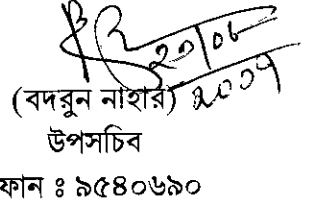 ২০/০৮
২০০৭
(বদরুন নাহার)
উপসচিব
ফোন ঃ ৯৫৪০৬৯০